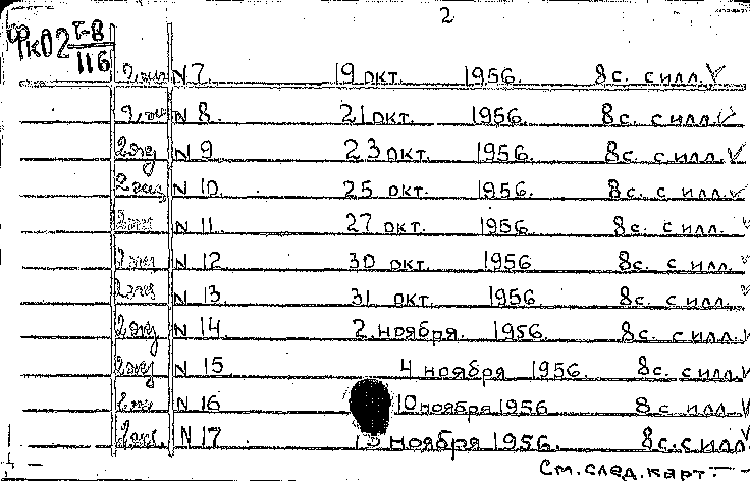 2
ФК02 Г-В/116
2 экз N 7. 19 окт. 1956. 8с. с илл. V
2 экз N 8. 21 окт. 1956. 8с. с илл. V
2 экз N 9 23 окт. 1956. 8с. с илл. V
2 экз N 10. 25 окт. 1956. 8с. с илл. V
2 экз N 11. 27 окт. 1956. 8с. с илл. V
2 экз N 12 30 окт. 1956 8с. с илл. V
2 экз N 13. 31 окт. 1956. 8с. с илл. V
2 экз N 14 2 ноября. 1956. 8с. с илл. V
2 экз N 15 4 ноября 1956. 8с. с илл. V
2 экз N 16 10 ноября 1956 8с илл V
2 экз. N 17 ноября 1956. 8с. с илл V
См. след. карт.